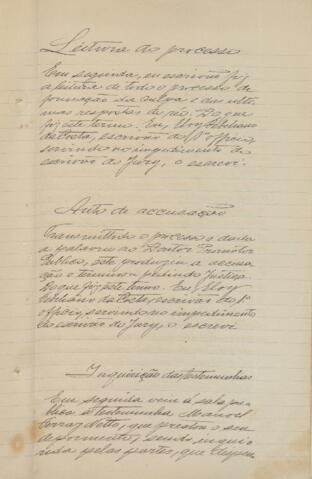 Leitura do processo
Em seguida, eu escrivão fiz
a leitura de todo o processo de
formação da culpa e das ulti-
mas respostas do réo. Do que
fiz este termo. Eu, Eloy
da Costa, escrivão do 1º officio,
servindo no impedimento do
escrivão do Jury, o escrevi.
Auto de accusação
Transmittido o processo e dada
a palavra ao Doutor Promotor
Publico, este produziu a accusa-
ção e terminou pedindo Justiça.
Do que fiz este termo. Eu, Eloy
da Costa, escrivão do 1º
officio, servindo no impedimento
do escrivão do Jury, o escrevi
Inquirição das testemunhas
Em seguida vem á sala pu-
blica a testemunha Manoel
Ferraz Netto, que prestou o seu
depoimento, sendo inqui-
rida pelas partes, que